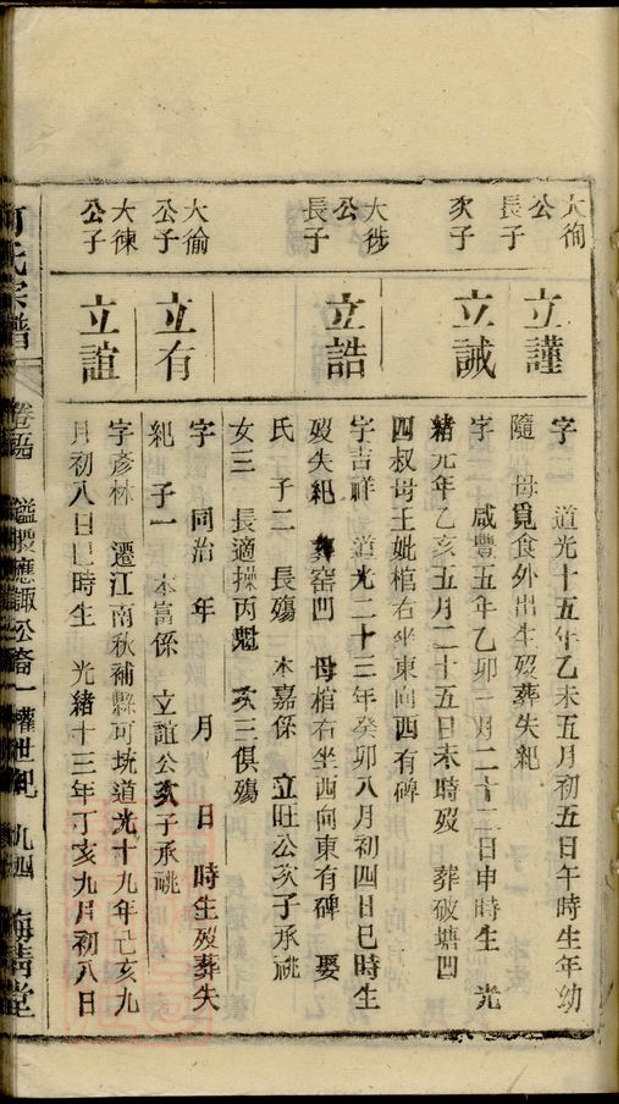 大徇
公
長子
立謹
字　道光十五年乙未五月初五日午時生年幼
隨　母覓食外出生歿葬失紀
次子
立誠
字　咸豐五年乙卯一月二十二日申時生　光
緒元年乙亥五月二十五日未時歿　葬破塘凹
四叔母王妣棺右坐東向西有碑
大徏
公
長子
立誥
字吉祥　道光二十三年癸卯八月初四日巳時生
歿失紀　葬窑凹　母棺右坐西向東有碑　娶
氏　子二　長殤　本嘉係　立旺公次子承祧
女三　長適操丙魁　次三俱殤
大偷
公子
立有
字　同治　年　月　日　時生歿葬失
紀　子一　本富係　立誼公次子承祧
大徚
公子
立誼
字彥林　遷江南秋補縣可坑道光十九年己亥九
月初八日巳時生　光緒十三年丁亥九月初八日
氏宗譜